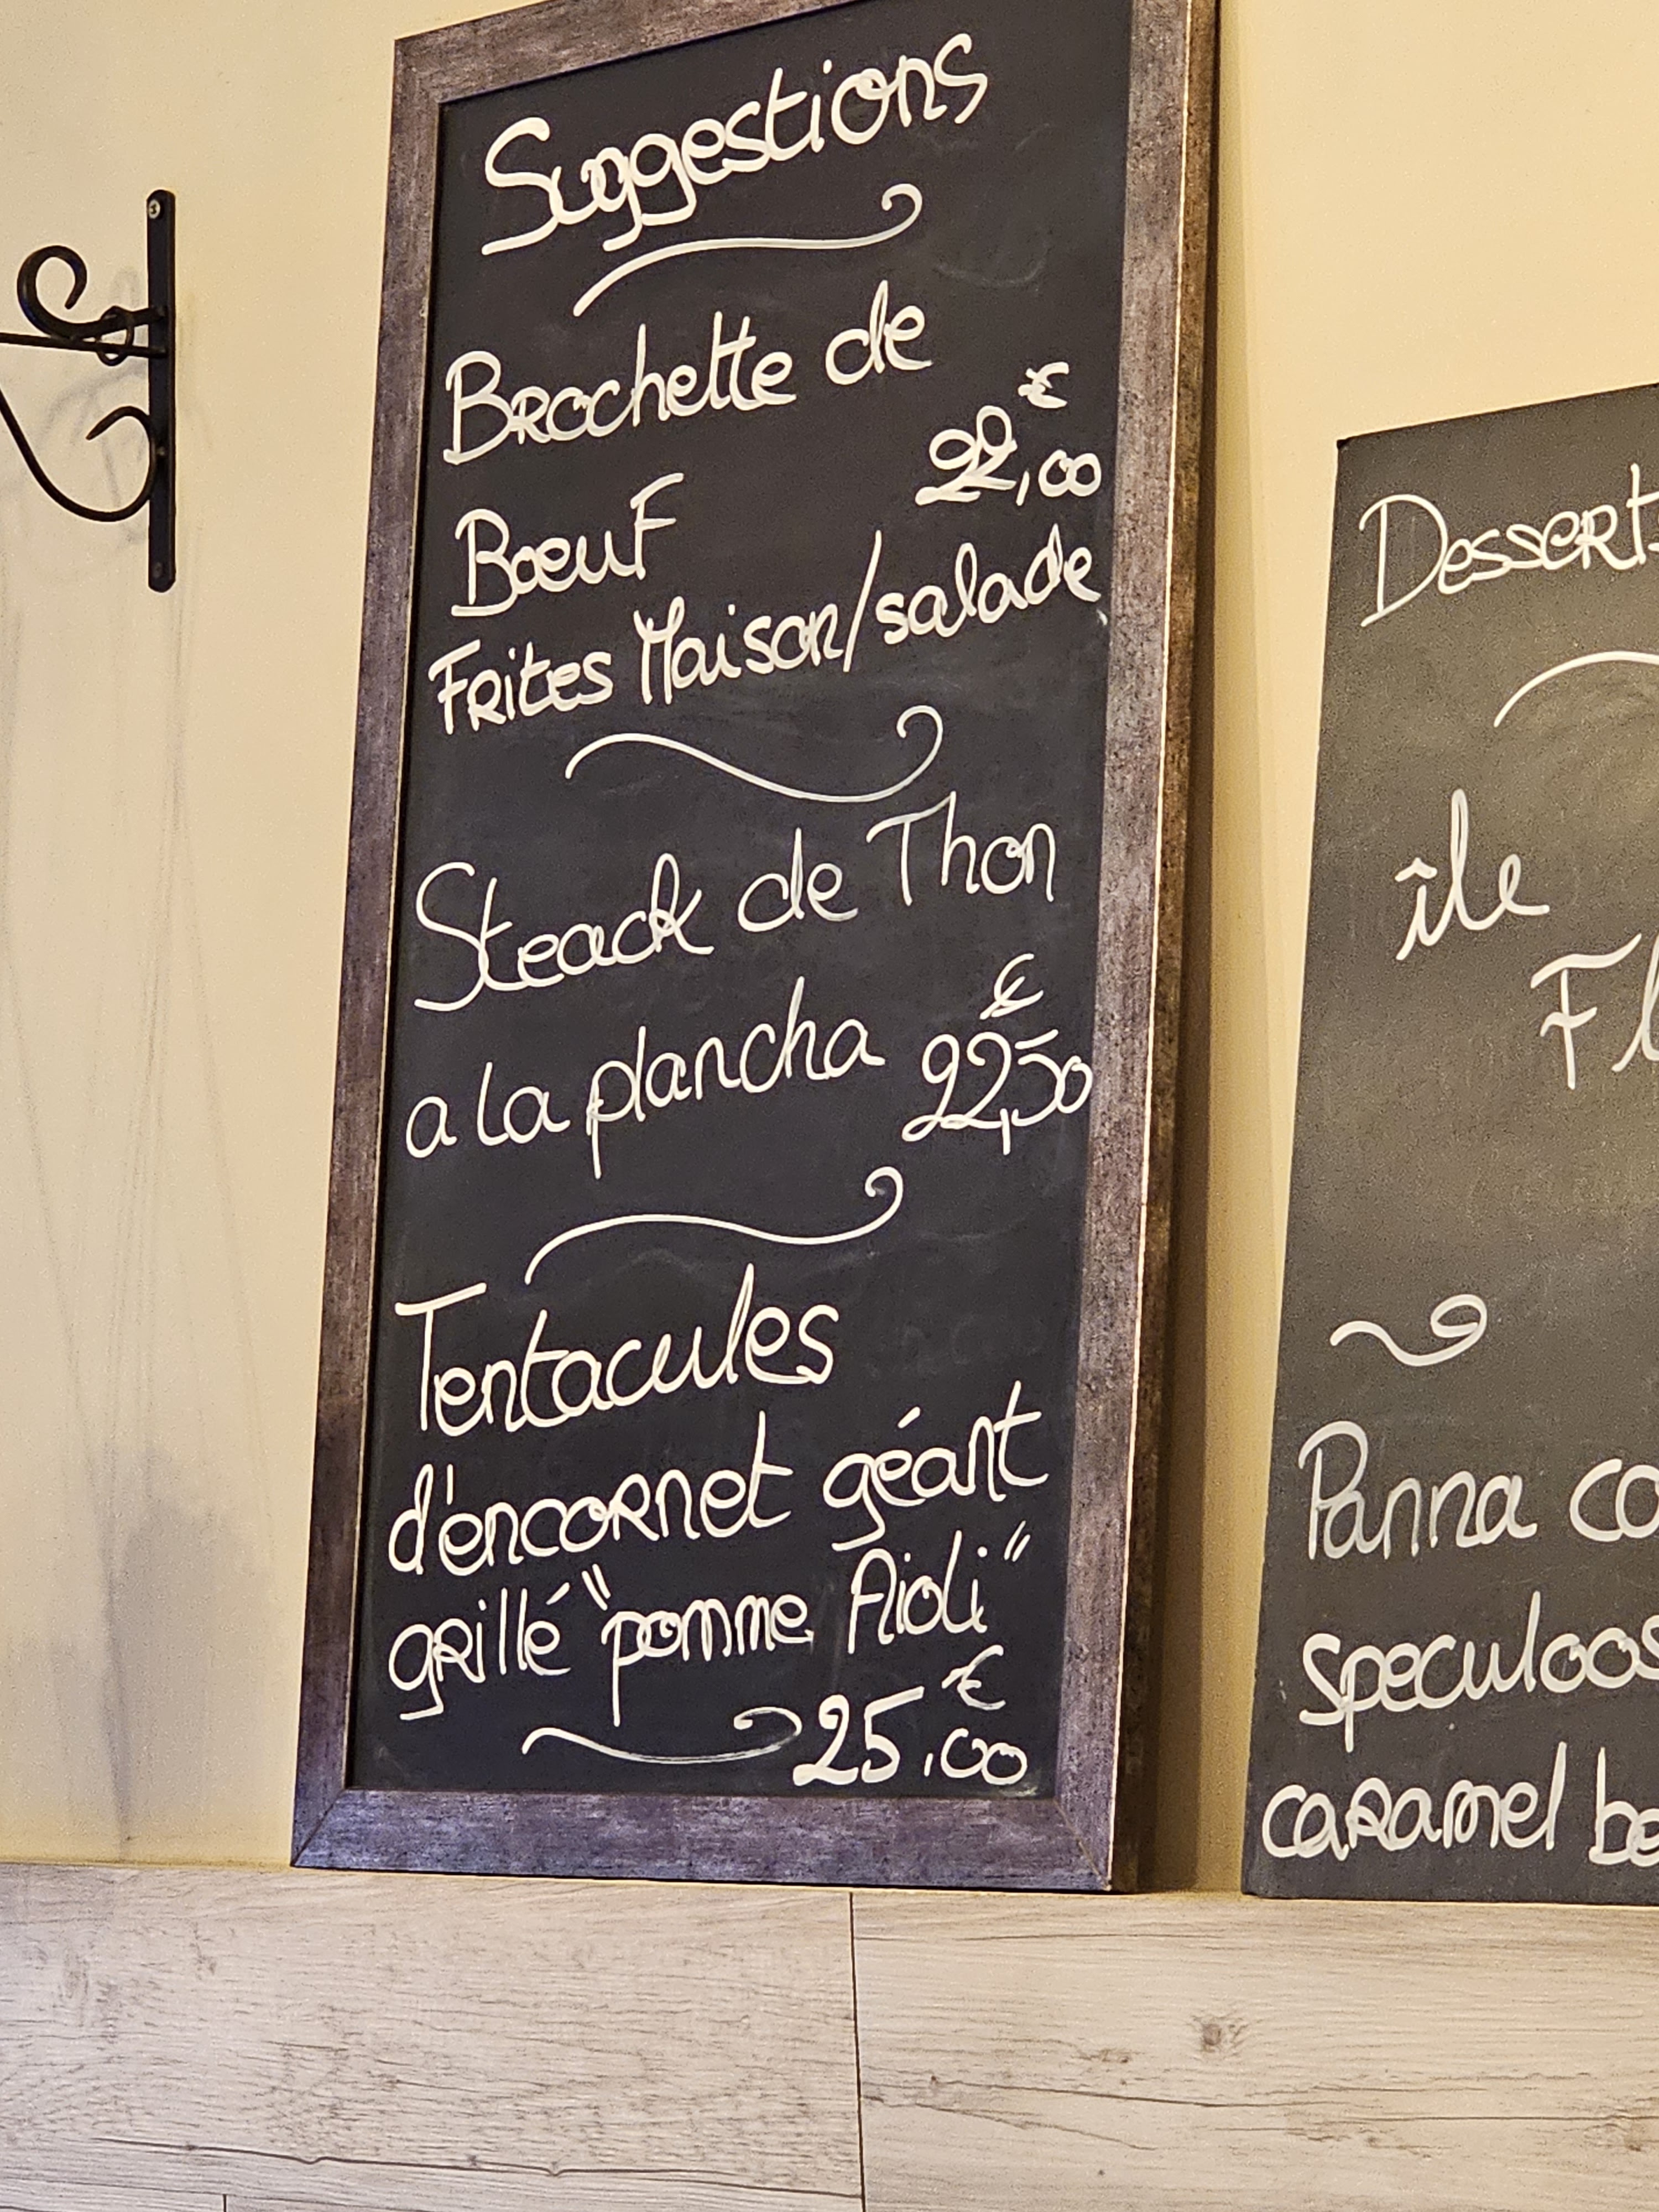 Suggestions
Brochette de
22,00 €
Bœuf
Frites Maison/salade
Steack de Thon
a la plancha 22,50 €
Tentacules
d'encornet géant
grillé "pomme Aioli"
25,00 €
Dessert
île
Fl
Panna co
speculoos
caramel be